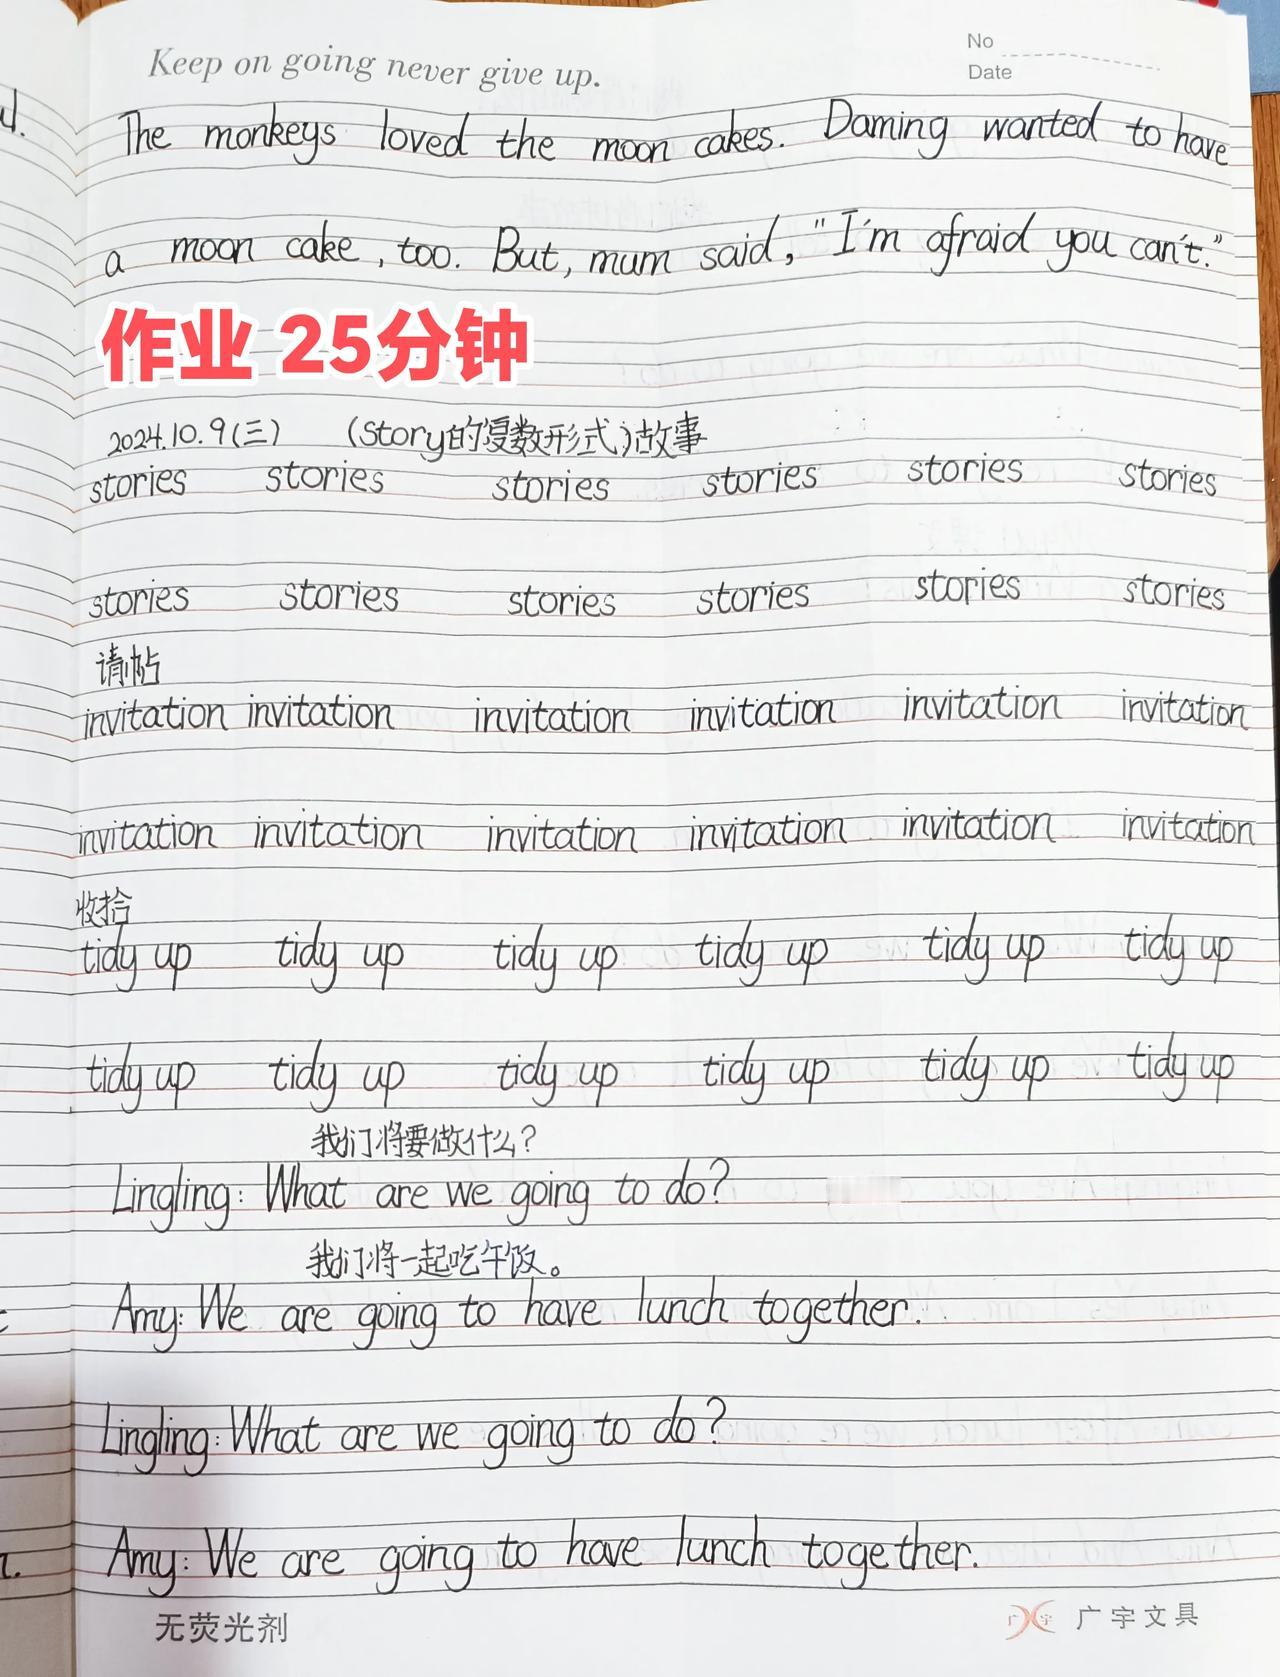 Keep on going never give up.
No
Date
The monkeys loved the moon cakes. Daming wanted to have
a moon cake, too. But, mum said, "I'm afraid you can't."
作业 25分钟
2024.10.9(三) (story的复数形式)故事
stories stories stories stories stories stories
stories stories stories stories stories stories
请帖
invitation invitation invitation invitation invitation invitation
invitation invitation invitation invitation invitation invitation
收拾
tidy up tidy up tidy up tidy up tidy up tidy up
tidy up tidy up tidy up tidy up tidy up tidy up
我们将要做什么?
Lingling: What are we going to do?
我们将一起吃午饭。
Amy: We are going to have lunch together.
Lingling: What are we going to do?
Amy: We are going to have lunch together.
无荧光剂
广宇文具